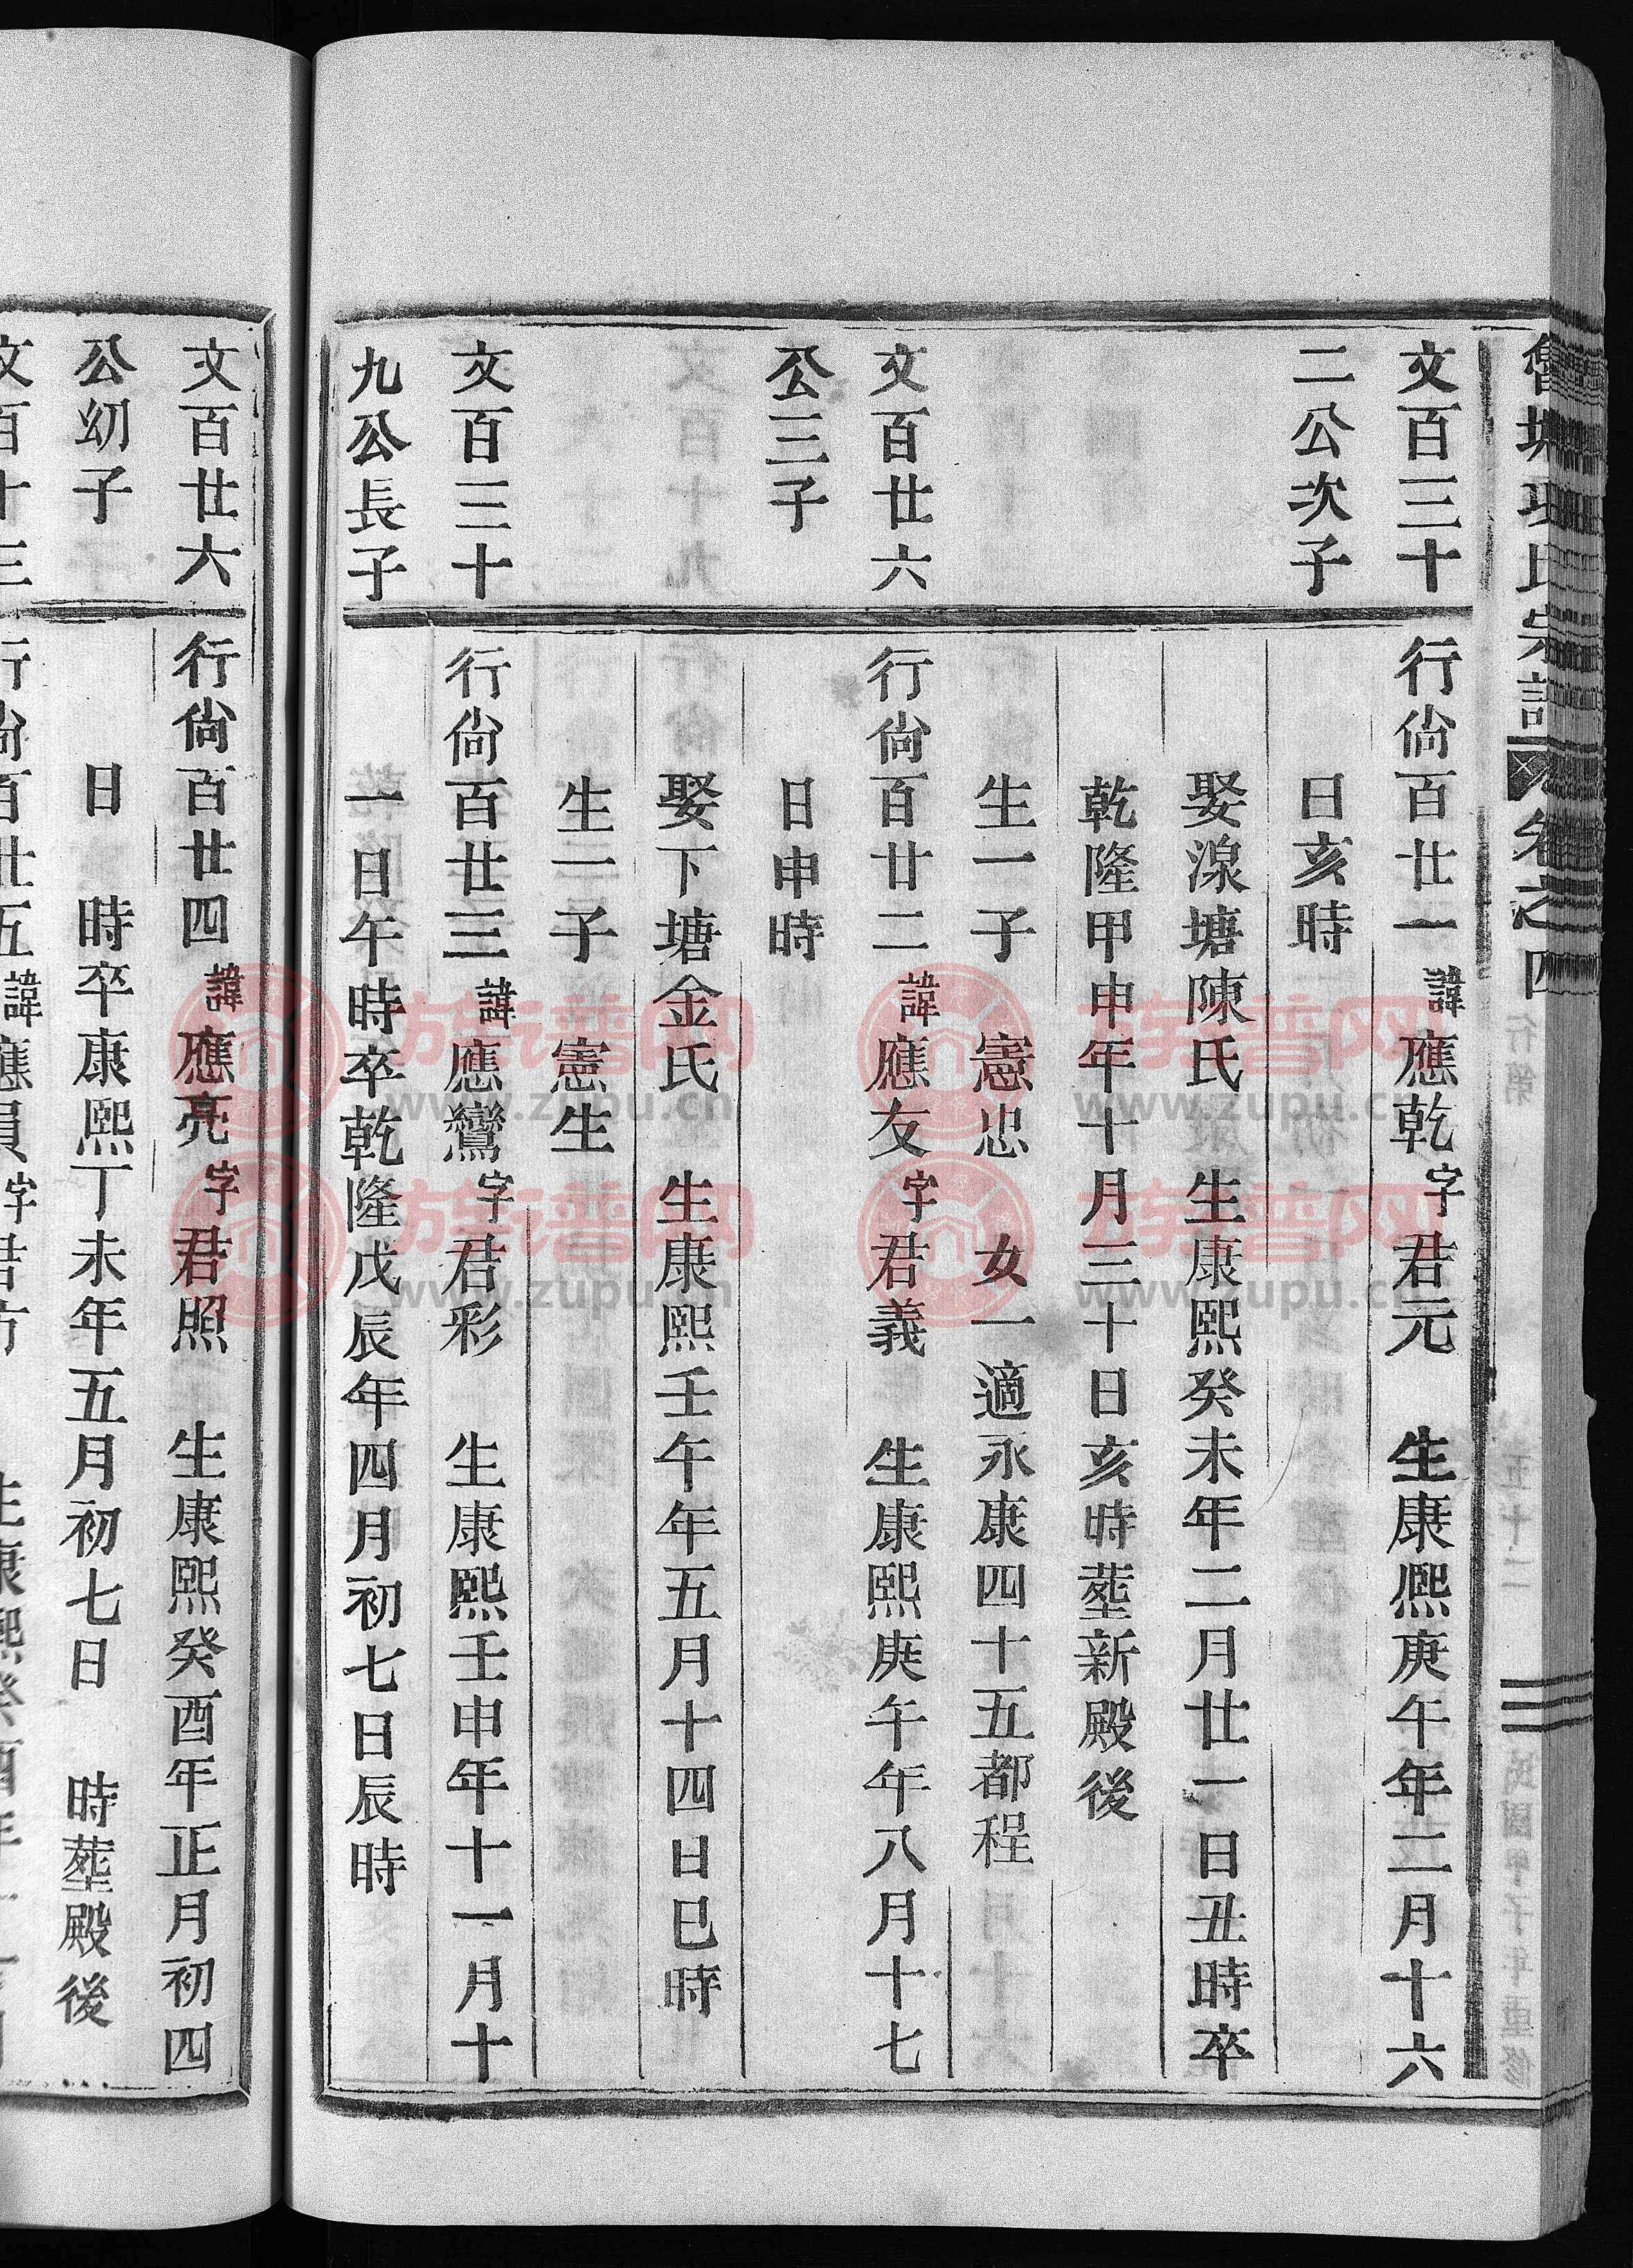 文百三十
二公次子
文百廿六
公三子
文百三十
九公長子
行尙百廿一諱應乾字君元　生康熙庚午年二月十六
日亥時
娶湶塘陳氏　生康熙癸未年二月廿一日丑時卒
乾隆甲申年十月三十日亥時塟新殿後
生一子　憲忠　女一適永康四十五都程
行尙百廿二諱應友字君義　生康熙庚午年八月十七
日申時
娶下塘金氏　生康熙壬午年五月十四日巳時
生一子　憲生
行尙百廿三諱應鸞字君彩　生康熙壬申年十一月十
一日午時卒乾隆戊辰年四月初七日辰時
文百廿六
公幼子
行尙百廿四諱應亮字君照　生康熙癸酉年正月初四
日　時卒康熙丁未年五月初七日　時塟殿後
族谱网
www.zupu.cn
族谱网
www.zupu.cn
族谱网
www.zupu.cn
族谱网
www.zupu.cn